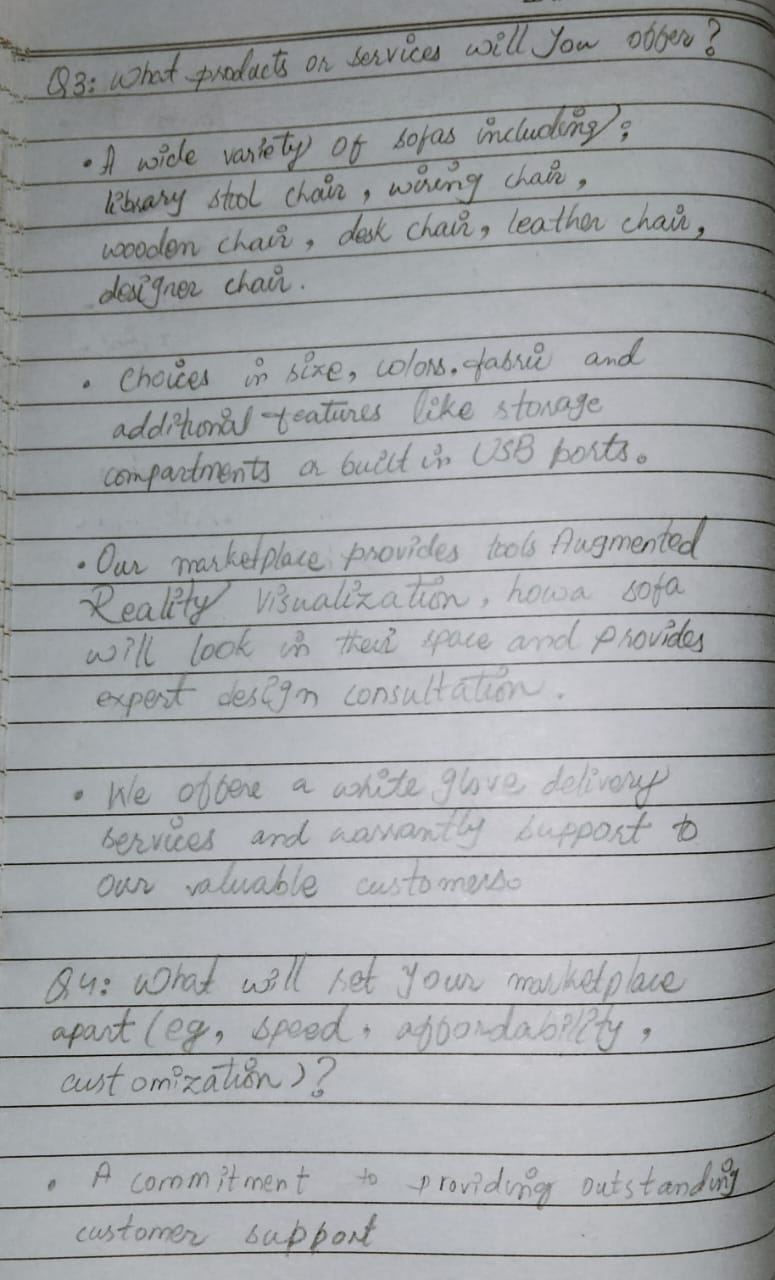 Q3: What products or services will you offer?
• A wide variety of sofas including;
library stool chair, wiring chair,
wooden chair, desk chair, leather chair,
designer chair.
• Choices in size, colors, fabric and
additional features like storage
compartments or built in USB ports.
• Our marketplace provides tools Augmented
Reality Visualization, how a sofa
will look in their space and provides
expert design consultation.
• We offere a white glove delivery
services and warrantly support to
our valuable customers.
Q4: What will set your marketplace
apart (eg, speed, affordability,
customization)?
• A commitment to providing outstanding
customer support